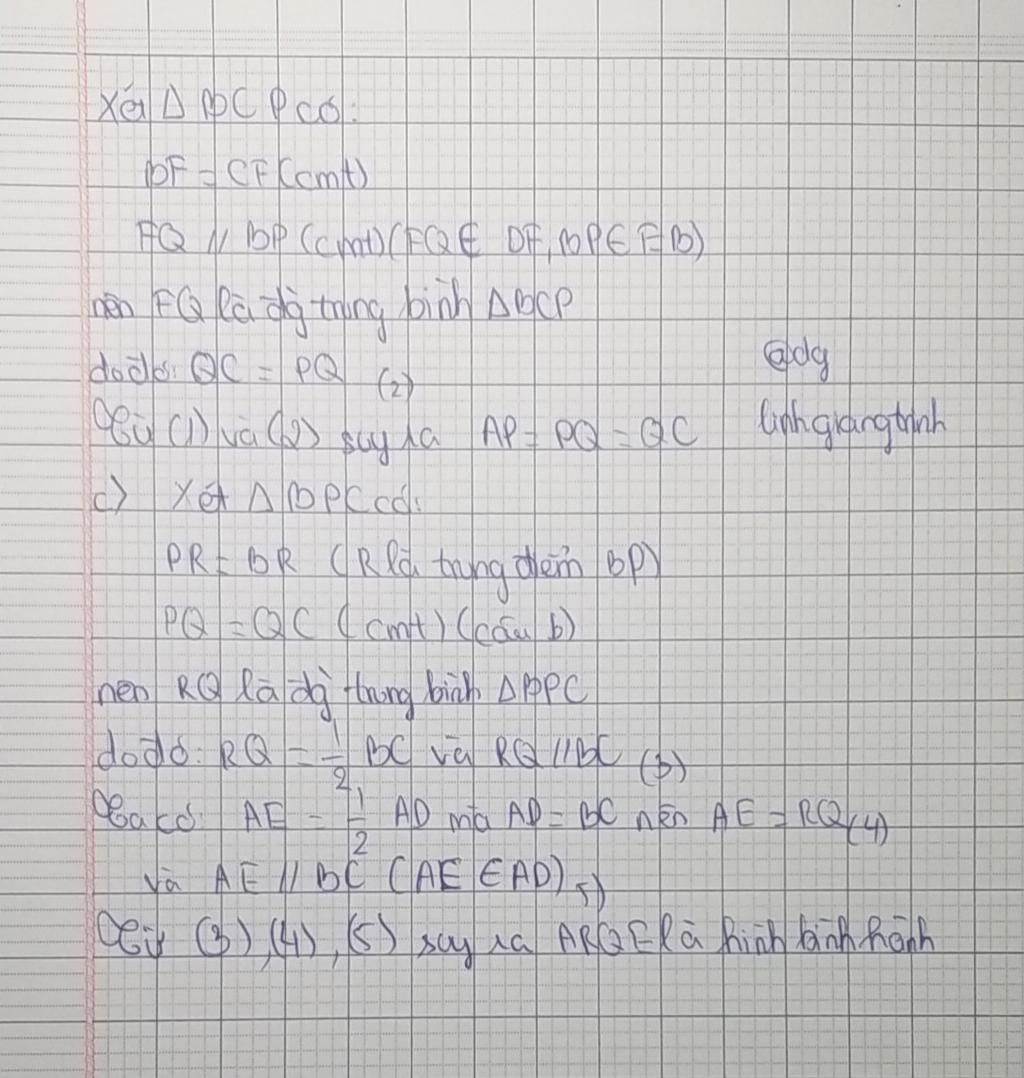 Xét Δ BCP có:
BF = CF (cmt)
FQ // BP (cmt) (FQ ∈ DF, BP ∈ EB)
nên FQ là đg trung bình ΔBCP
do đó: QC = PQ (2)
@dg
Từ (1) và (2) suy ra AP = PQ = QC
linhgiangtrinh
c) Xét Δ BPC có:
PR = BR (R là trung điểm BP)
PQ = QC (cmt) (câu b)
nên RQ là đg trung bình ΔBPC
do đó: RQ = 1/2 BC và RQ // BC (3)
Ta có: AE = 1/2 AD mà AD = BC nên AE = RQ (4)
và AE // BC (AE ∈ AD) (5)
Từ (3), (4), (5) suy ra ARQE là hình bình hành